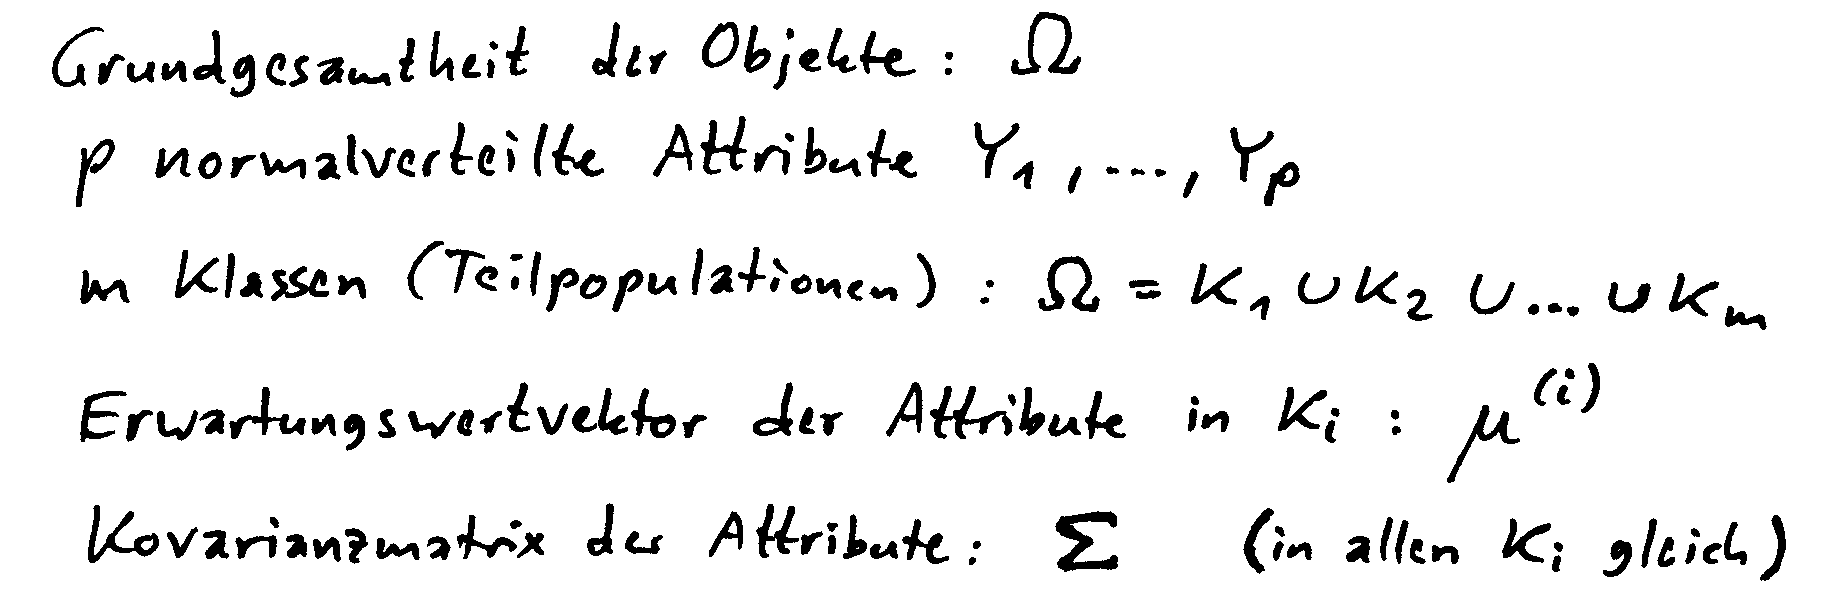 Grundgesamtheit der Objekte : Ω
p normalverteilte Attribute Y₁ , ... , Yₚ
m Klassen (Teilpopulationen) : Ω = K₁ ∪ K₂ ∪ ... ∪ Kₘ
Erwartungswertvektor der Attribute in Kᵢ : μ⁽ⁱ⁾
Kovarianzmatrix der Attribute : Σ (in allen Kᵢ gleich)